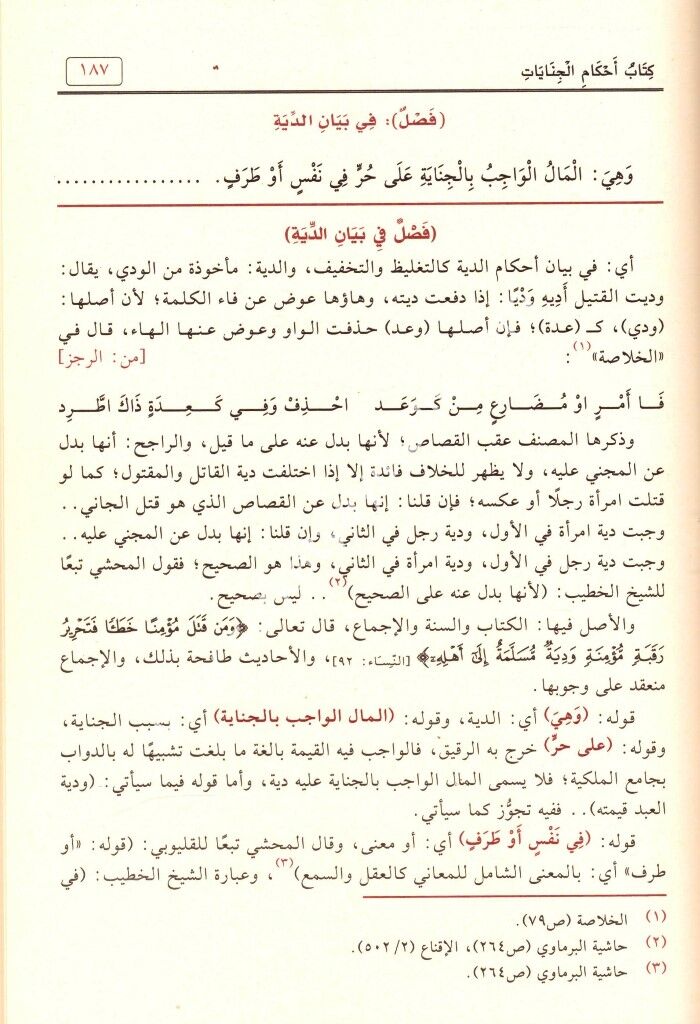 كِتَابُ أَحْكَامِ الْجِنَايَاتِ
١٨٧
(فَصْلٌ): فِي بَيَانِ الدِّيَةِ
وَهِيَ: الْمَالُ الْوَاجِبُ بِالْجِنَايَةِ عَلَى حُرٍّ فِي نَفْسٍ أَوْ طَرَفٍ. .................
(فَصْلٌ فِي بَيَانِ الدِّيَةِ)
أي: في بيان أحكام الدية كالتغليظ والتخفيف، والدية: مأخوذة من الودي، يقال:
وديت القتيل أَدِيهِ وَدْيًا: إذا دفعت ديته، وهاؤها عوض عن فاء الكلمة؛ لأن أصلها:
(ودي)، كـ (عدة)؛ فإن أصلها (وعد) حذفت الواو وعوض عنها الهاء، قال في
«الخلاصة»(١): [من: الرجز]
فَا أَمْرٍ اوْ مُضَارِعٍ مِنْ كَوَعَد احْذِفْ وَفِي كَعِدَةٍ ذَاكَ اطَّرِد
وذكرها المصنف عقب القصاص؛ لأنها بدل عنه على ما قيل، والراجح: أنها بدل
عن المجني عليه، ولا يظهر للخلاف فائدة إلا إذا اختلفت دية القاتل والمقتول؛ كما لو
قتلت امرأة رجلًا أو عكسه؛ فإن قلنا: إنها بدل عن القصاص الذي هو قتل الجاني..
وجبت دية امرأة في الأول، ودية رجل في الثاني، وإن قلنا: إنها بدل عن المجني عليه..
وجبت دية رجل في الأول، ودية امرأة في الثاني، وهذا هو الصحيح؛ فقول المحشي تبعًا
للشيخ الخطيب: (لأنها بدل عنه على الصحيح)(٢).. ليس بصحيح.
والأصل فيها: الكتاب والسنة والإجماع، قال تعالى: ﴿وَمَن قَتَلَ مُؤْمِنًا خَطَـًٔا فَتَحْرِيرُ
رَقَبَةٍ مُّؤْمِنَةٍ وَدِيَةٌ مُّسَلَّمَةٌ إِلَىٰٓ أَهْلِهِۦٓ﴾ [النِّسَاء: ٩٢]، والأحاديث طافحة بذلك، والإجماع
منعقد على وجوبها.
قوله: (وَهِيَ) أي: الدية، وقوله: (المال الواجب بالجناية) أي: بسبب الجناية،
وقوله: (على حرٍّ) خرج به الرقيق، فالواجب فيه القيمة بالغة ما بلغت تشبيهًا له بالدواب
بجامع الملكية؛ فلا يسمى المال الواجب بالجناية عليه دية، وأما قوله فيما سيأتي: (ودية
العبد قيمته).. ففيه تجوُّز كما سيأتي.
قوله: (فِي نَفْسٍ أَوْ طَرَفٍ) أي: أو معنى، وقال المحشي تبعًا للقليوبي: (قوله: «أو
طرف» أي: بالمعنى الشامل للمعاني كالعقل والسمع)(٣)، وعبارة الشيخ الخطيب: (في
(١) الخلاصة (ص٧٩).
(٢) حاشية البرماوي (ص٢٦٤)، الإقناع (٥٠٢/٢).
(٣) حاشية البرماوي (ص٢٦٤).